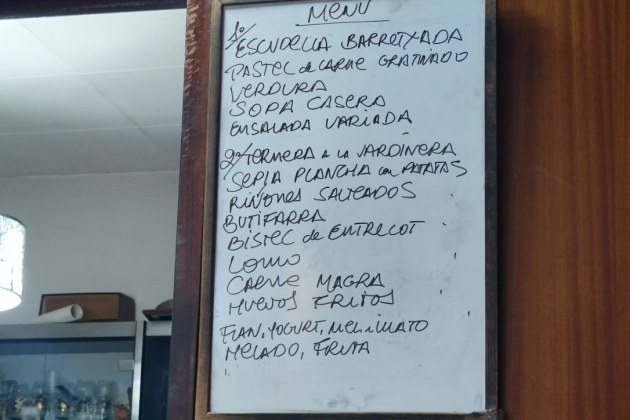 MENÚ
1º/ ESCUDELLA BARRETXADA
PASTEL de CARNE GRATINADO
VERDURA
SOPA CASERA
ENSALADA VARIADA
2º/ TERNERA A LA JARDINERA
SEPIA PLANCHA con PATATAS
RIÑONES SALTEADOS
BUTIFARRA
BISTEC de ENTRECOT
LOMO
CARNE MAGRA
HUEVOS FRITOS
FLAN, YOGURT, MEL i MATO
HELADO, FRUTA